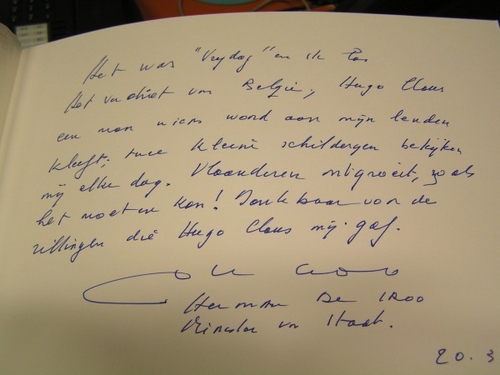 Het was "Vrijdag" en ik las
Het verdriet van België, Hugo Claus
een man wiens woord aan mijn lenden
kleeft; twee kleine schilderijen bekijken
mij elke dag. Vlaanderen ontgroeit, zoals
het moet en kan! Dankbaar voor de
rillingen die Hugo Claus mij gaf.
Herman De Croo
Minister van Staat.
20.3